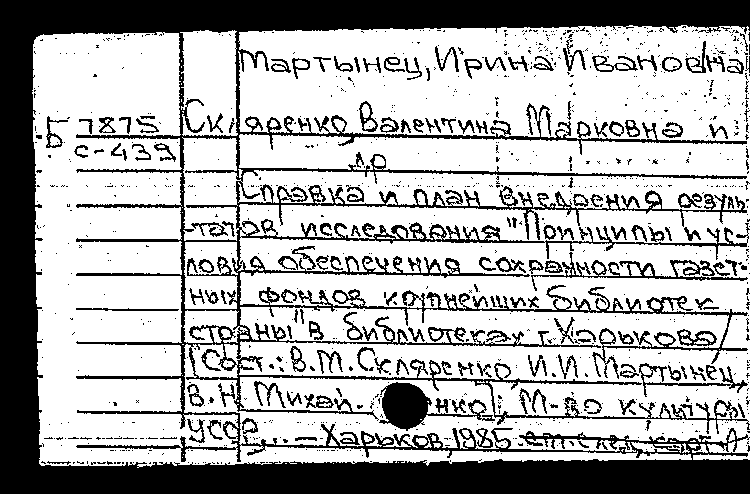 Мартынец, Ирина Ивановна
Б 7875 Скляренко, Валентина Марковна и
с-439 др
Справка и план внедрения резуль-
татов исследования "Принципы и ус-
ловия обеспечения сохранности газет-
ных фондов крупнейших библиотек
страны" в библиотеках г. Харькова /
[Сост.: В.М. Скляренко, И.И. Мартынец,
В.Н. Михай. енко]; М-во культуры
УССР,... – Харьков, 1985